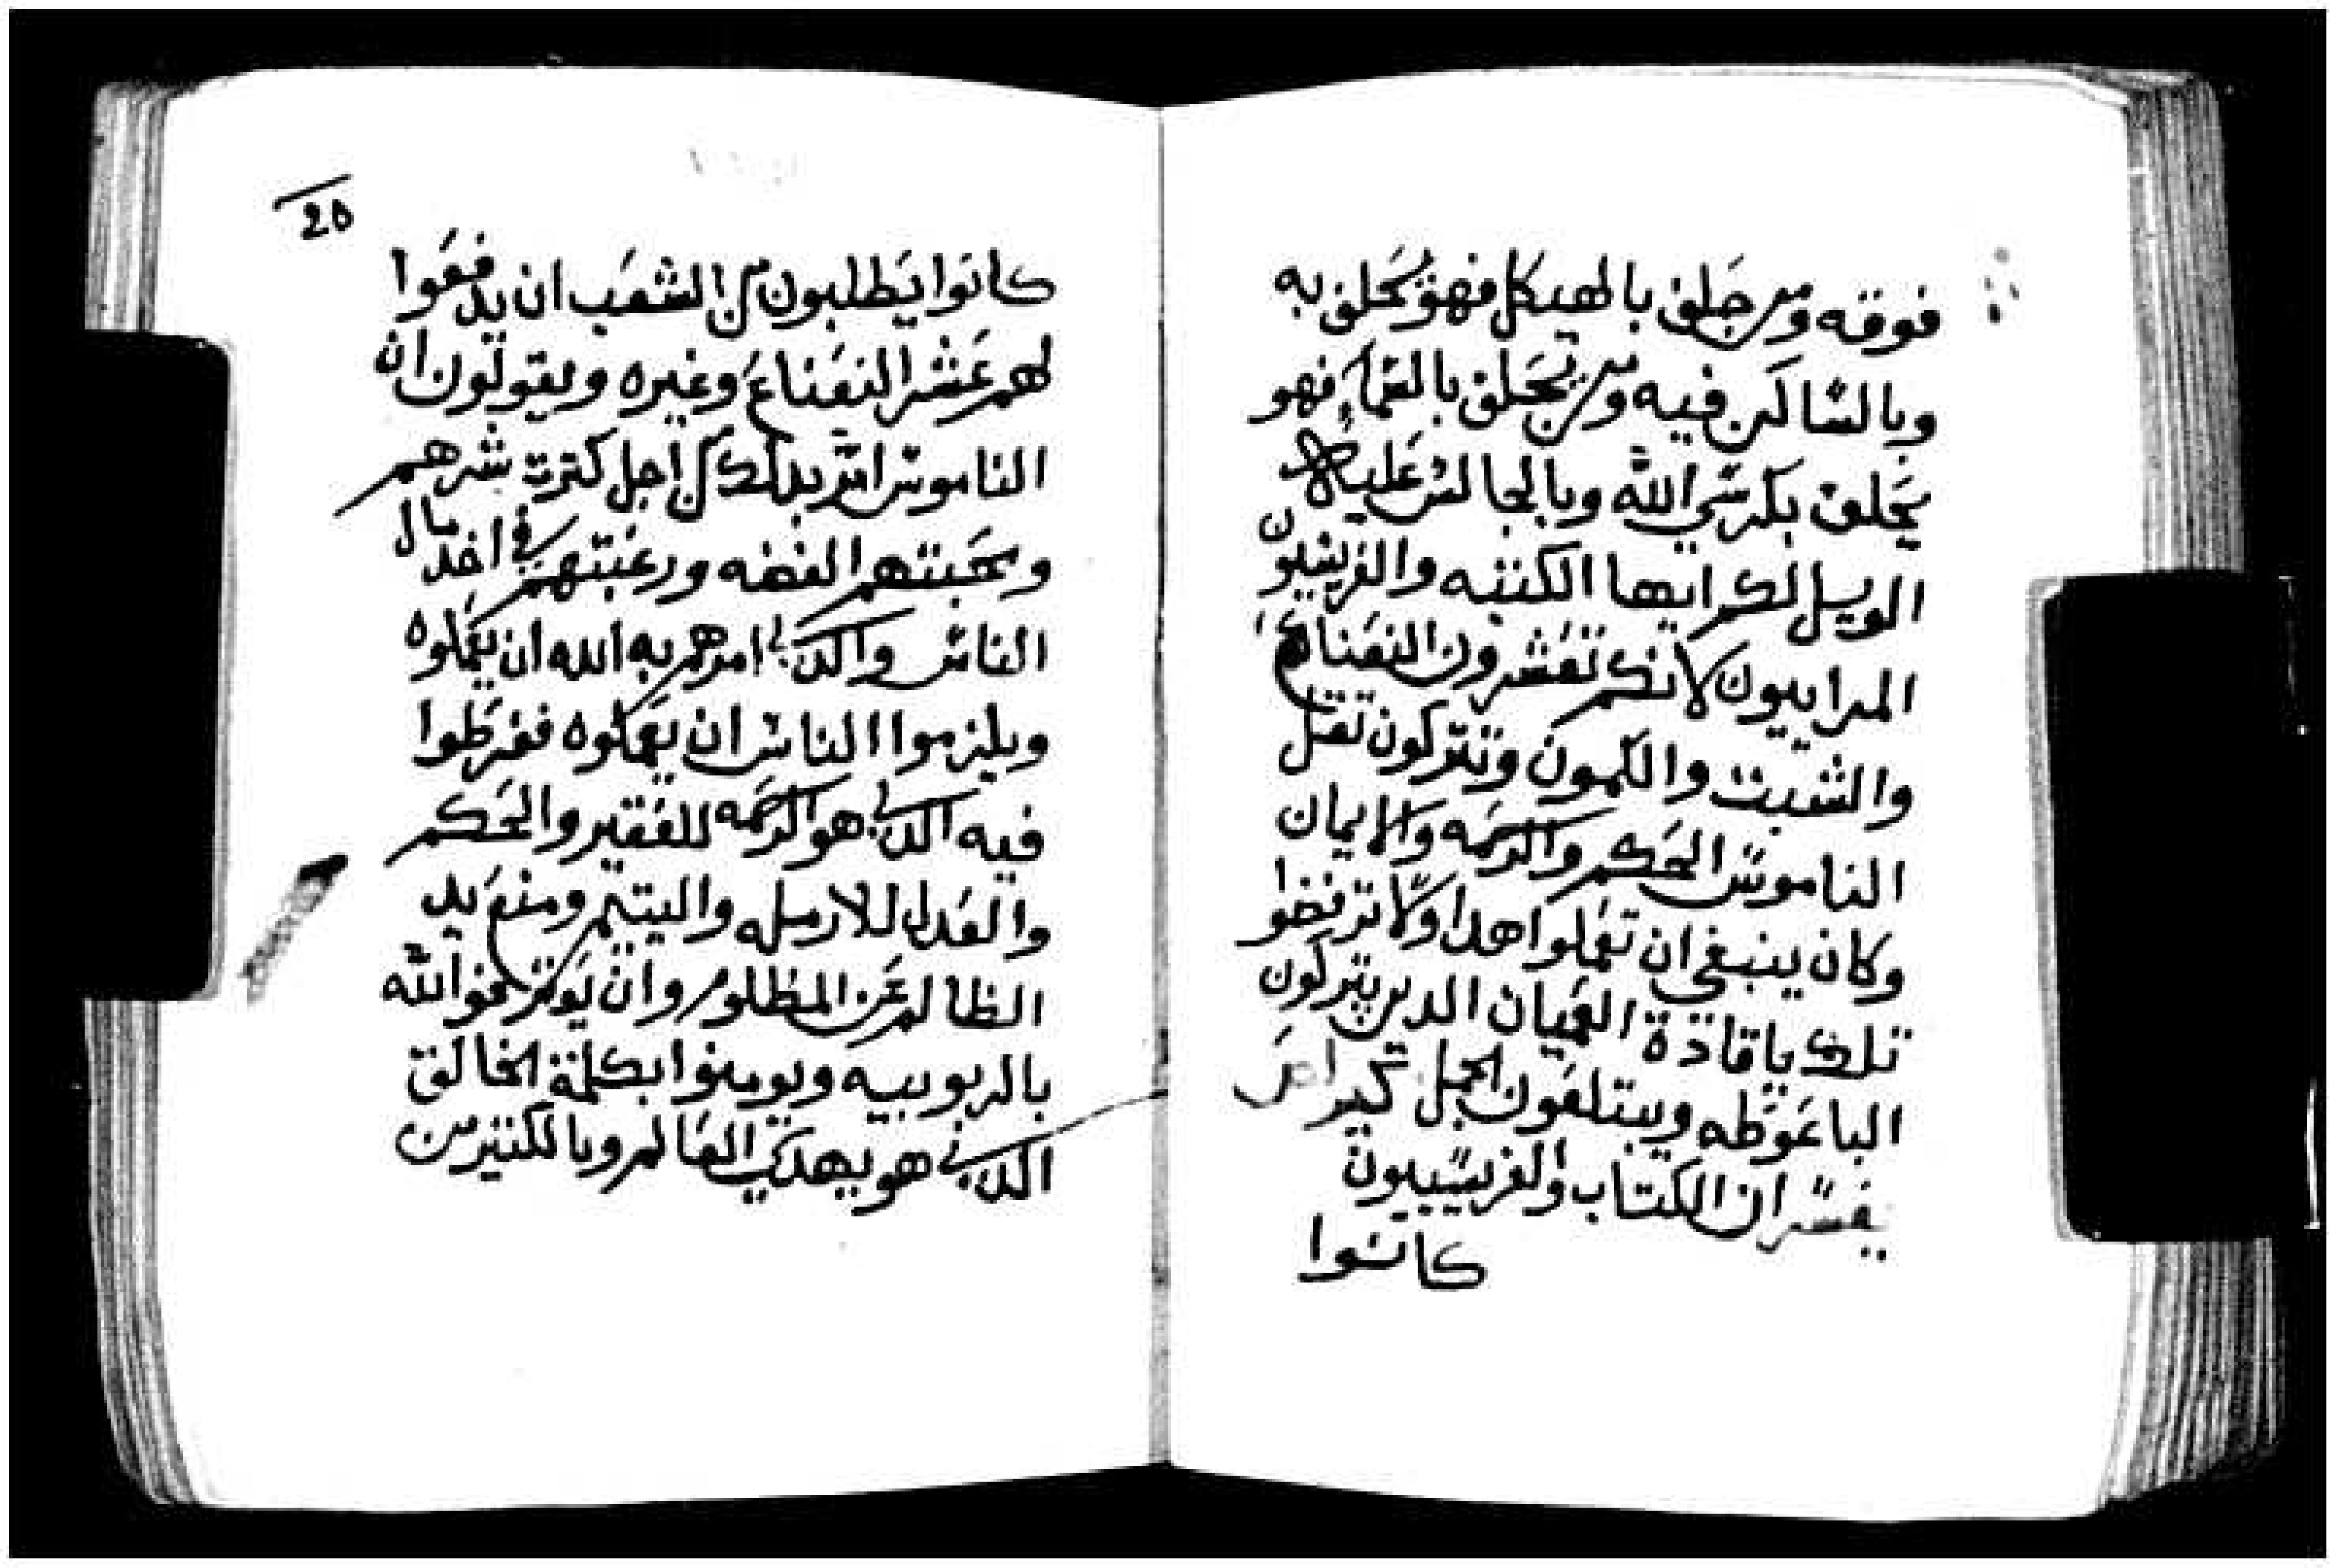 فوقه ومن حلف بالهيكل فهو يحلف به
وبالساكن فيه ومن يحلف بالسماء فهو
يحلف بكرسي الله وبالجالس عليه
الويل لكم ايها الكتبه والفريسيون
المراييون لانكم تعشرون النعناع
والشبت والكمون وتتركون تقل
الناموس الحكم والرحمه والايمان
وكان ينبغي ان تعملوا هدا ولا ترفضوا
تلك يا قادة العميان الدين يتركون
الباعوظه ويبتلعون الجمل
يفسر ان الكتاب والفريسييون
كانوا
20
كانوا يطلبون من الشعب ان يدفعوا
لهم عشر النعناع وغيره ويقولون ان
الناموس امر بدلك من اجل كترت شرهم
ومحبتهم الفضه ورغبتهم في اخد مال
الناس والدي امرهم به الله ان يعملوه
ويلزموا الناس ان يعملوه ففرطوا
فيه الدي هو الرحمه للفقير والحكم
والعدل للارمله واليتيم ومنع يد
الظالم عن المظلوم وان يوترفوا لله
بالربوبيه ويومنوا بكلمة الخالق
الدي هو يهدي العالم وبالكتير من